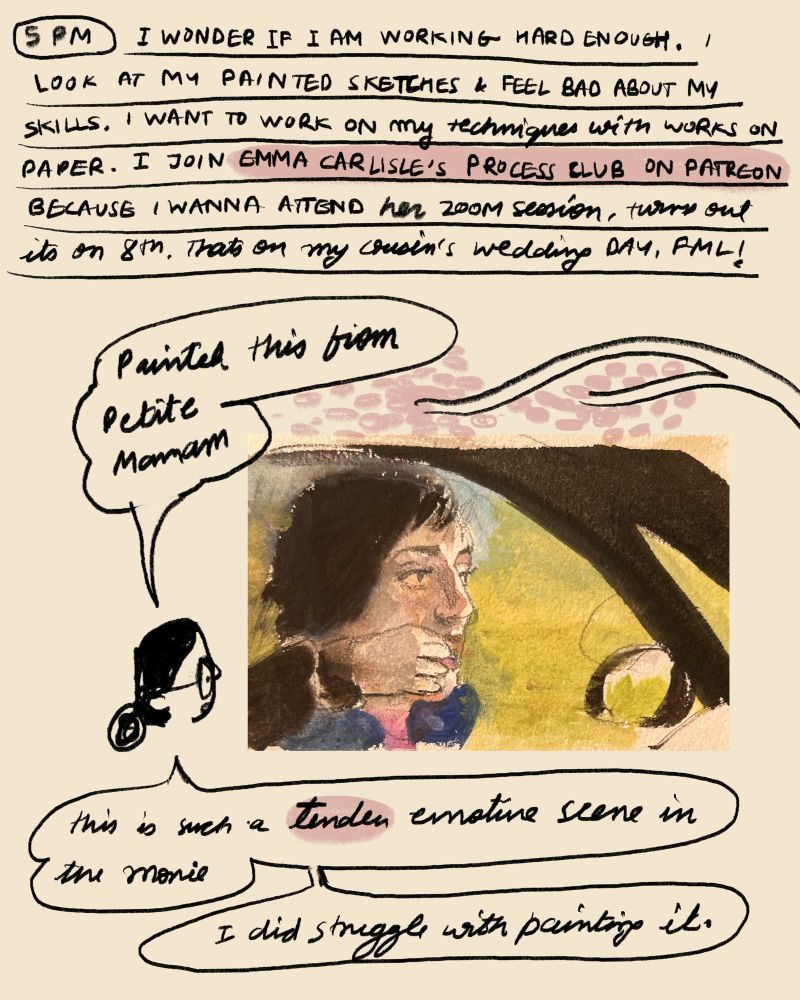 5 PM I WONDER IF I AM WORKING HARD ENOUGH. I
LOOK AT MY PAINTED SKETCHES & FEEL BAD ABOUT MY
SKILLS. I WANT TO WORK ON my techniques with WORKS ON
PAPER. I JOIN EMMA CARLISLE'S PROCESS CLUB ON PATREON
BECAUSE I WANNA ATTEND her ZOOM session, turns out
its on 8th. Thats on my cousin's wedding DAY, FML!
Painted this from
Petite
Mamam
this is such a tender emotive scene in
the movie
I did struggle with painting it.